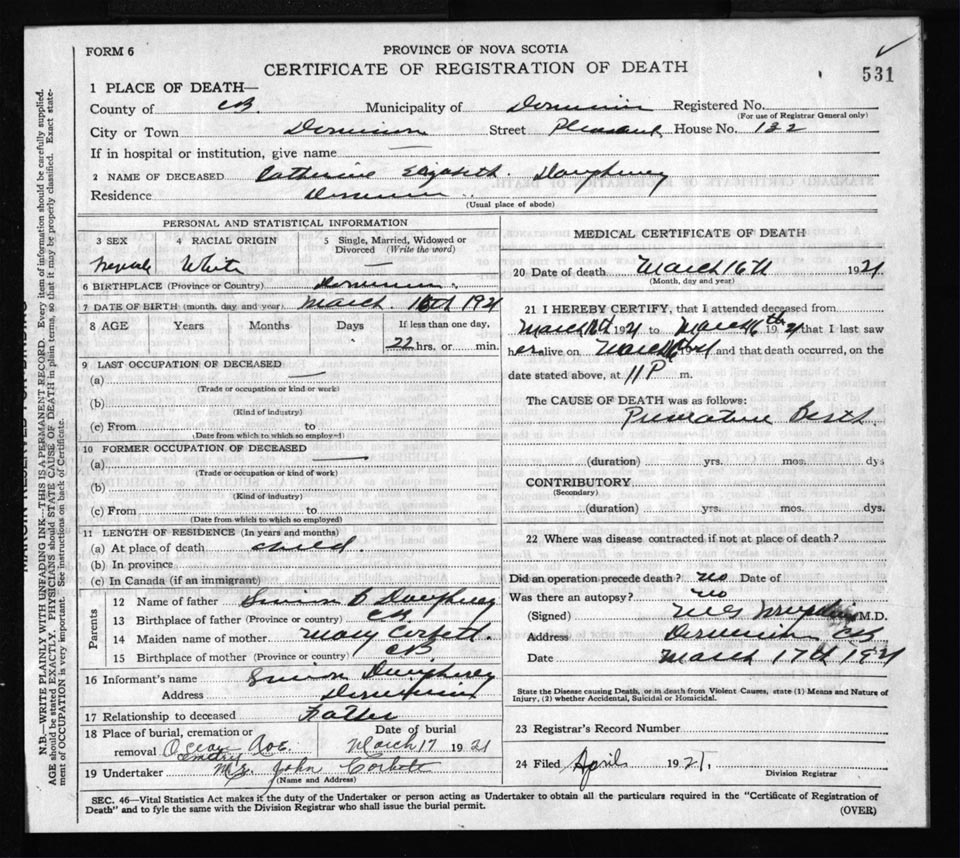 FORM 6
PROVINCE OF NOVA SCOTIA
CERTIFICATE OF REGISTRATION OF DEATH
531
1 PLACE OF DEATH—
County of CB. Municipality of Dominion Registered No.
(For use of Registrar General only)
City or Town Dominion Street Pleasant House No. 132
If in hospital or institution, give name —
2 NAME OF DECEASED Catherine Elizabeth Daughney
Residence Dominion.
(Usual place of abode)
PERSONAL AND STATISTICAL INFORMATION
3 SEX 4 RACIAL ORIGIN 5 Single, Married, Widowed or Divorced (Write the word)
White —
6 BIRTHPLACE (Province or Country) Dominion.
7 DATE OF BIRTH (month, day and year) March 16th 1921
8 AGE Years Months Days If less than one day,
22 hrs. or min.
9 LAST OCCUPATION OF DECEASED —
(a)
(Trade or occupation or kind of work)
(b)
(Kind of industry)
(c) From to
(Date from which to which so employed)
10 FORMER OCCUPATION OF DECEASED —
(a)
(Trade or occupation or kind of work)
(b)
(Kind of industry)
(c) From to
(Date from which to which so employed)
11 LENGTH OF RESIDENCE (In years and months)
(a) At place of death child.
(b) In province
(c) In Canada (if an immigrant)
Parents
12 Name of father Simon B Daughney
13 Birthplace of father (Province or country) CB
14 Maiden name of mother Mary Corbett
15 Birthplace of mother (Province or country) CB
16 Informant's name Simon Daughney
Address Dominion
17 Relationship to deceased Father
18 Place of burial, cremation or Date of burial
removal Ocean March 17 1921
19 Undertaker John Corbett
(Name and Address)
MEDICAL CERTIFICATE OF DEATH
20 Date of death March 16th 1921
(Month, day and year)
21 I HEREBY CERTIFY, that I attended deceased from
March 16th 1921 to March 16th 1921 that I last saw
her alive on March 16th 1921 and that death occurred, on the
date stated above, at 11 P m.
The CAUSE OF DEATH was as follows:
Premature Birth
(duration) yrs. mos. dys
CONTRIBUTORY
(Secondary)
(duration) yrs. mos. dys.
22 Where was disease contracted if not at place of death?
Did an operation precede death? no Date of
Was there an autopsy? no
(Signed) M.D.
Address Dominion CB
Date March 17th 1921
State the Disease causing Death, or in death from Violent Causes, state (1) Means and Nature of
Injury, (2) whether Accidental, Suicidal or Homicidal.
23 Registrar's Record Number
24 Filed April 1921.
Division Registrar
SEC. 46—Vital Statistics Act makes it the duty of the Undertaker or person acting as Undertaker to obtain all the particulars required in the "Certificate of Registration of
Death" and to fyle the same with the Division Registrar who shall issue the burial permit.
(OVER)
MARGIN RESERVED FOR BINDING
N.B.—WRITE PLAINLY WITH UNFADING INK—THIS IS A PERMANENT RECORD. Every item of information should be carefully supplied.
AGE should be stated EXACTLY. PHYSICIANS should STATE CAUSE OF DEATH in plain terms, so that it may be properly classified. Exact state-
ment of OCCUPATION is very important. See instructions on back of Certificate.